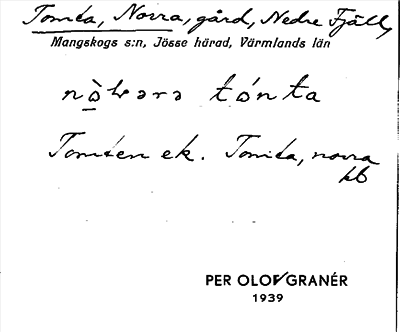 Tomta, Norra, gård, Nedre Fjäll,
Mangskogs s:n, Jösse härad, Värmlands län
nò̱rərə tónta
Tomten ek. Tomta, norra
kb
PER OLOF GRANÉR
1939